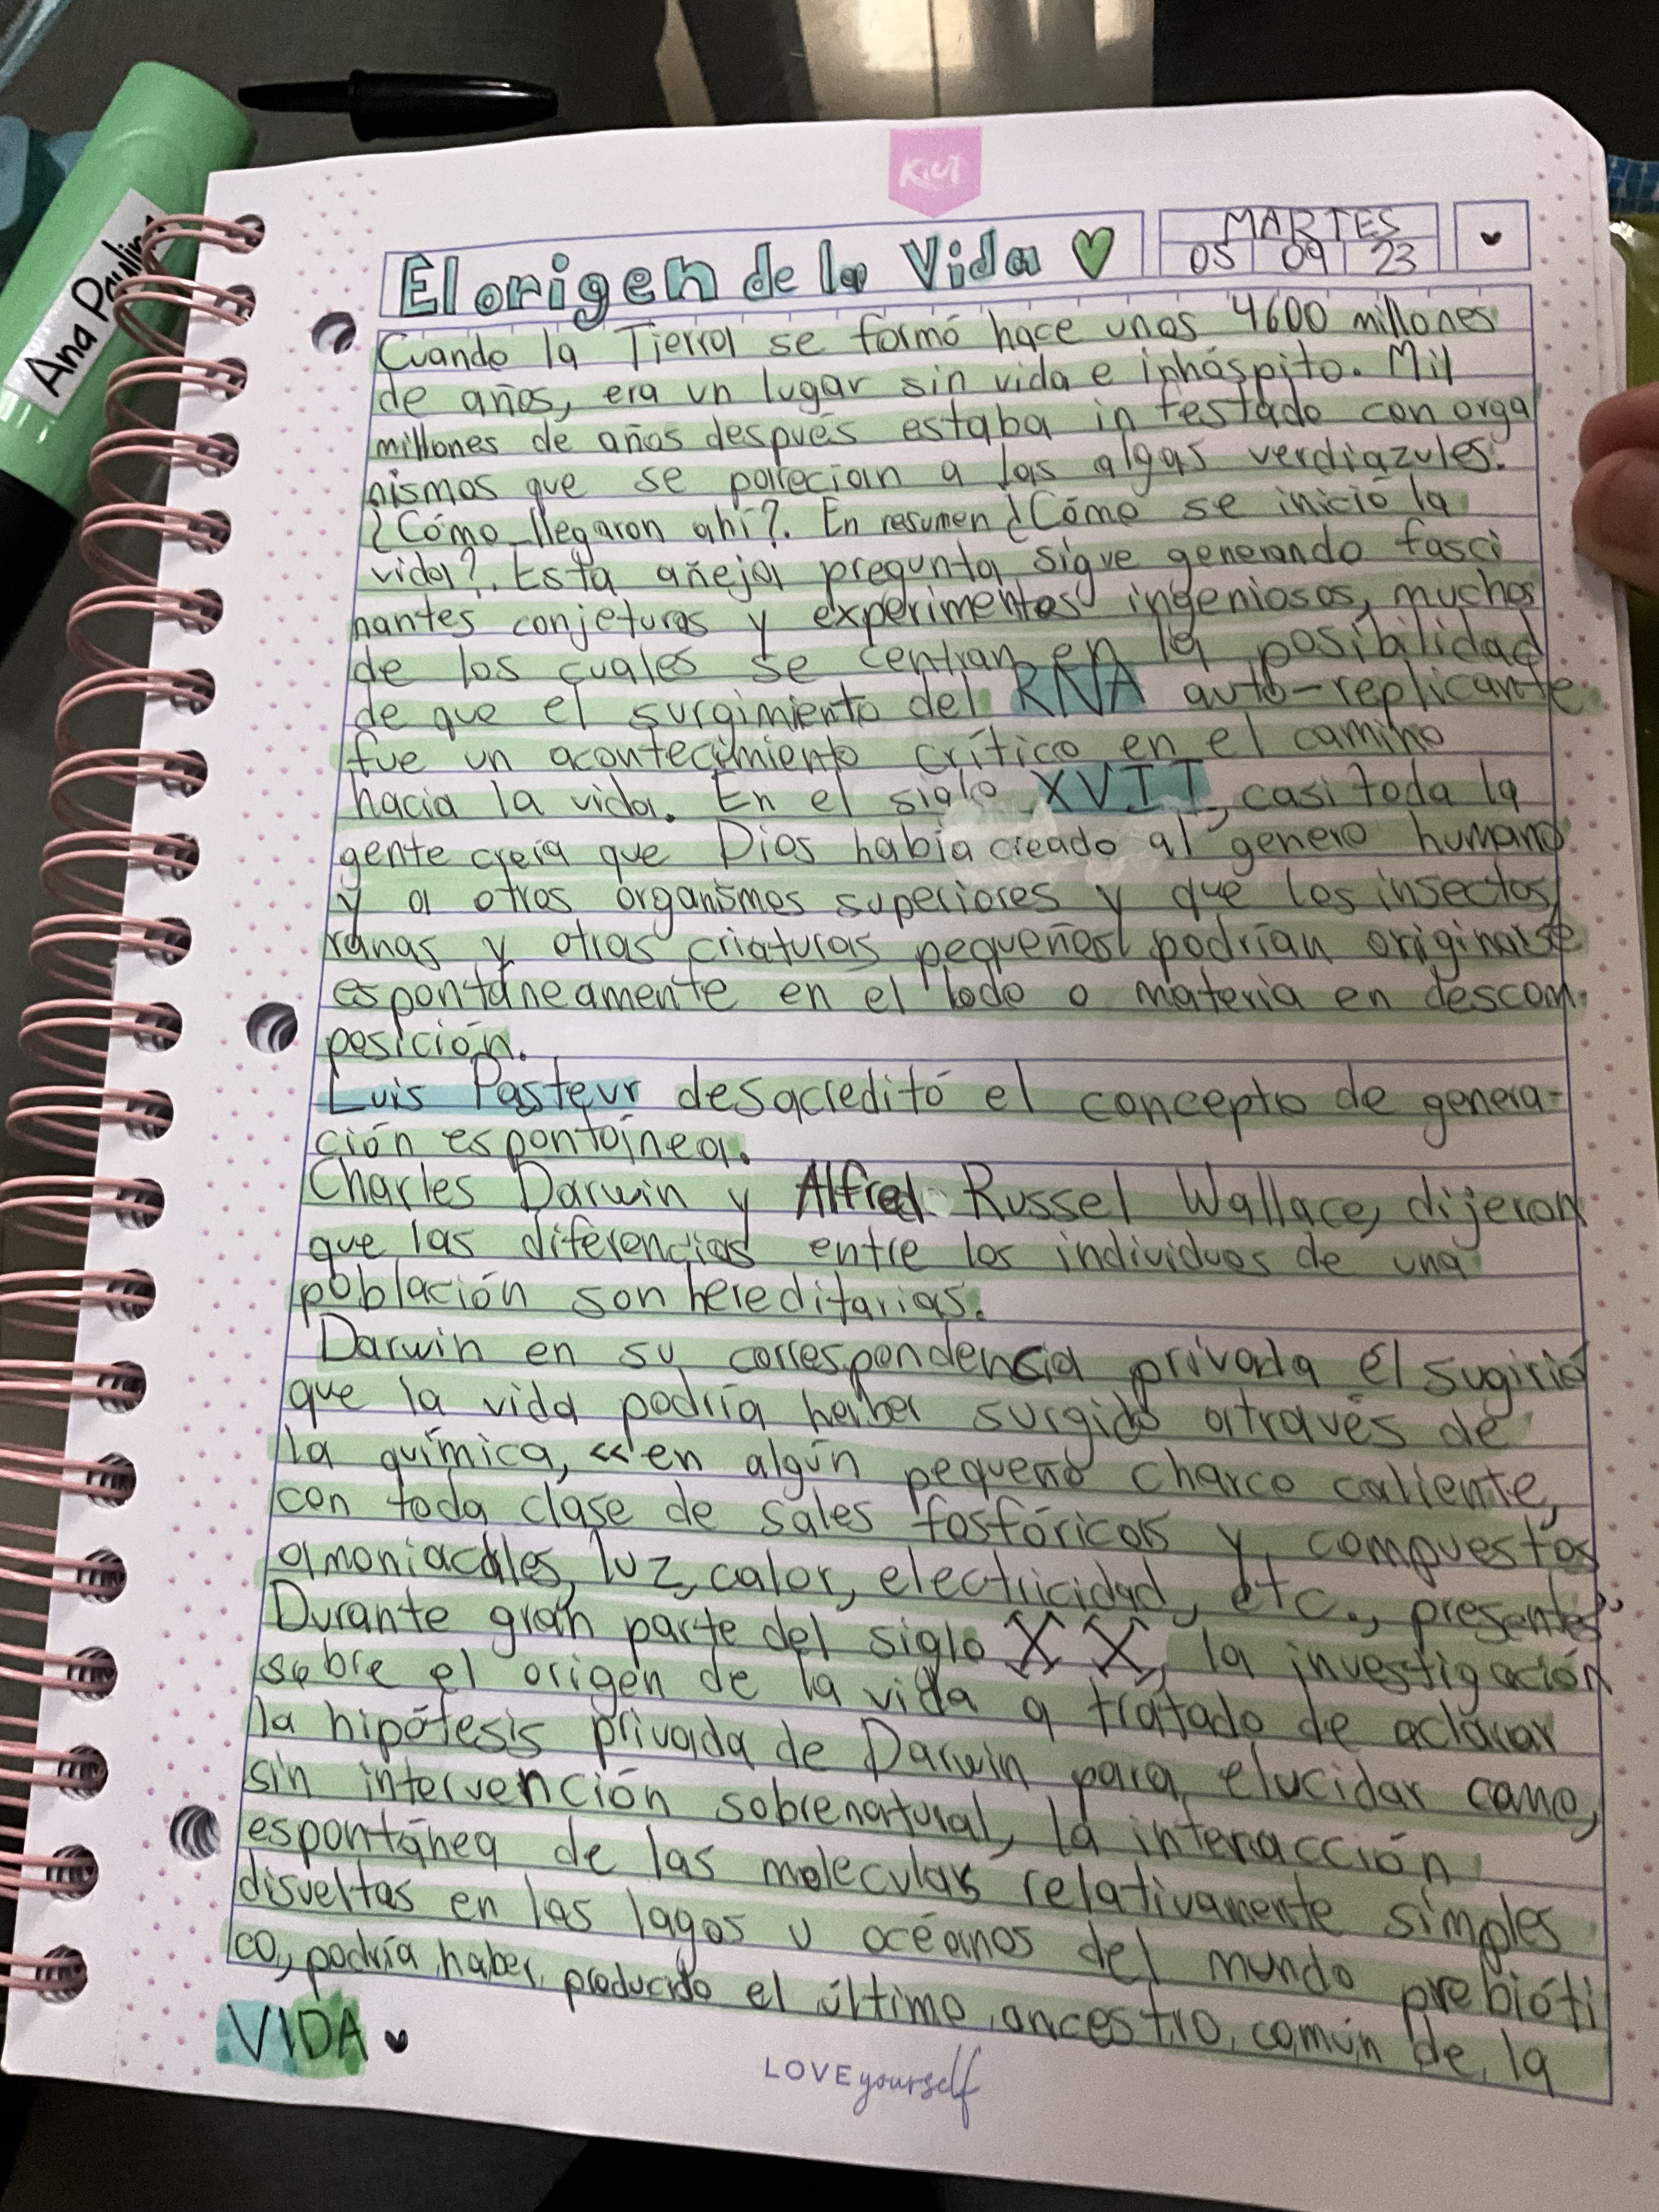 Ana Paulina
Kiut
El origen de la Vida
MARTES
05 09 23
Cuando la Tierra se formó hace unos 4600 millones
de años, era un lugar sin vida e inhóspito. Mil
millones de años después estaba infestado con orga
nismos que se parecian a las algas verdiazules.
¿Cómo llegaron ahí?. En resumen ¿Cómo se inició la
vida?. Esta añeja pregunta sigue generando fasci
nantes conjeturas y experimentos ingeniosos, muchos
de los cuales se centran en la posibilidad
de que el surgimiento del RNA auto-replicante
fue un acontecimiento crítico en el camino
hacia la vida. En el siglo XVII, casi toda la
gente creía que Dios había creado al genero humano
y a otros organismos superiores y que los insectos,
ranas y otras criaturas pequeñas podrían originarse
espontáneamente en el lodo o materia en descom-
posición.
Luis Pasteur desacreditó el concepto de genera-
ción espontáinea.
Charles Darwin y Alfred Russel Wallace, dijeron
que las diferencias entre los individuos de una
población son hereditarias.
Darwin en su correspondencia privada él sugirió
que la vida podría haber surgido através de
la química, «en algún pequeño charco caliente,
con toda clase de sales fosfóricas y compuestos
amoniacales, luz, calor, electricidad, etc., presentes"
Durante gran parte del siglo XX, la investigación
sobre el origen de la vida a tratado de aclarar
la hipótesis privada de Darwin para elucidar como,
sin intervención sobrenatural, la interacción
espontánea de las moleculas relativamente simples
disueltas en los lagos u océanos del mundo prebióti
co, podría haber producido el último ancestro común de la
VIDA
LOVE yourself